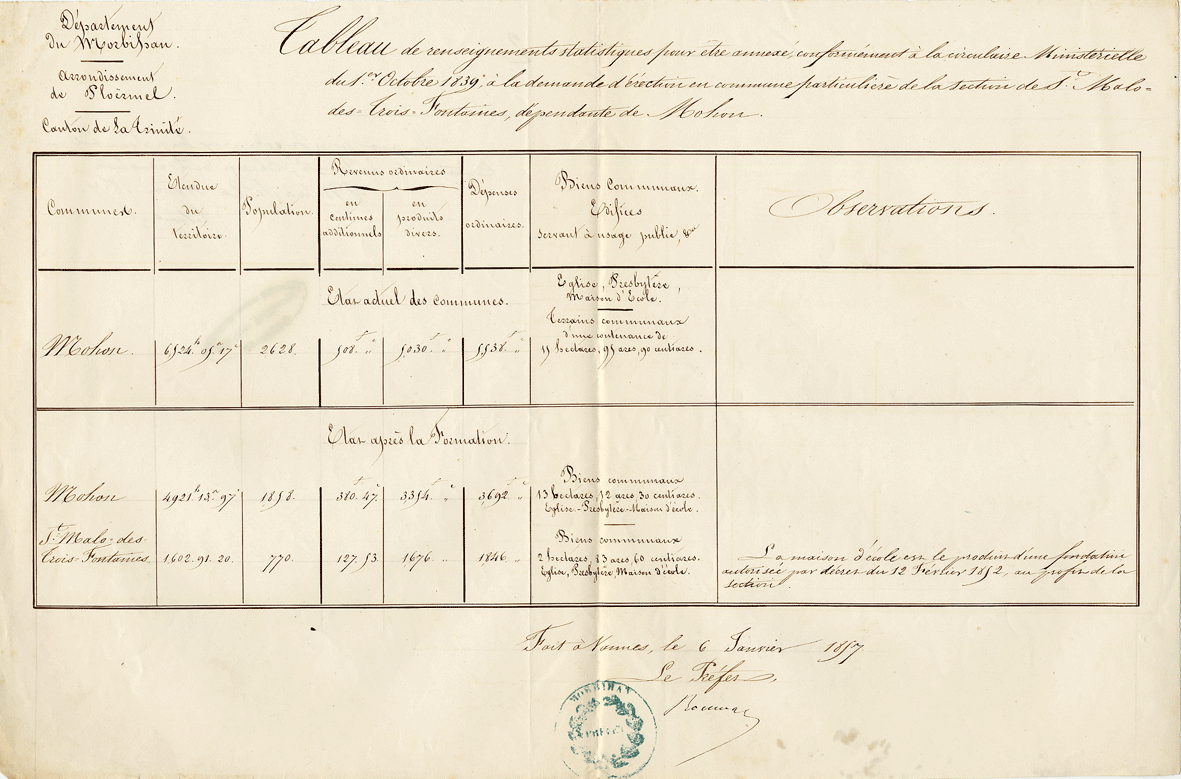 Département
du Morbihan.
Arrondissement
de Ploërmel.
Canton de La Trinité.
Tableau de renseignements statistiques pour être annexé, conformément à la circulaire Ministérielle
du 1.er Octobre 1839, à la demande d'érection en commune particulière de la section de St. Malo-
des-Trois-Fontaines, dépendante de Mohon.
Communes.
Etendue
du
territoire.
Population.
Revenus ordinaires
en
centimes
additionnels
en
produits
divers.
Dépenses
ordinaires.
Biens Communaux.
Edifices
servant à usage public, &ca
Observations.
Etat actuel des communes.
Eglise, Presbytère,
Maison d'Ecole.
Terrains communaux
d'une contenance de
15 hectares, 95 ares, 90 centiares.
Mohon. 6524.h 05.a 17.c 2628. 508.f " 5030.f " 5538.f "
Etat après la Formation.
Biens communaux
13 hectares, 12 ares, 30 centiares.
Eglise-Presbytère-Maison d'école.
Mohon 4921.h 13.a 97.c 1858. 380.f 47.c 3354.f "c 3692.f "c
St. Malo-des-
Trois-Fontaines 1602.91.20. 770. 127.53. 1676. " 1846. "
Biens communaux
2 hectares, 83 ares, 60 centiares.
Eglise, Presbytère, Maison d'école.
La maison d'école est le produit d'une fondation
autorisée par décret du 12 Février 1852, au profit de la
section.
Fait à Vannes, le 6 Janvier 1857
Le Préfet,
MORBIHAN